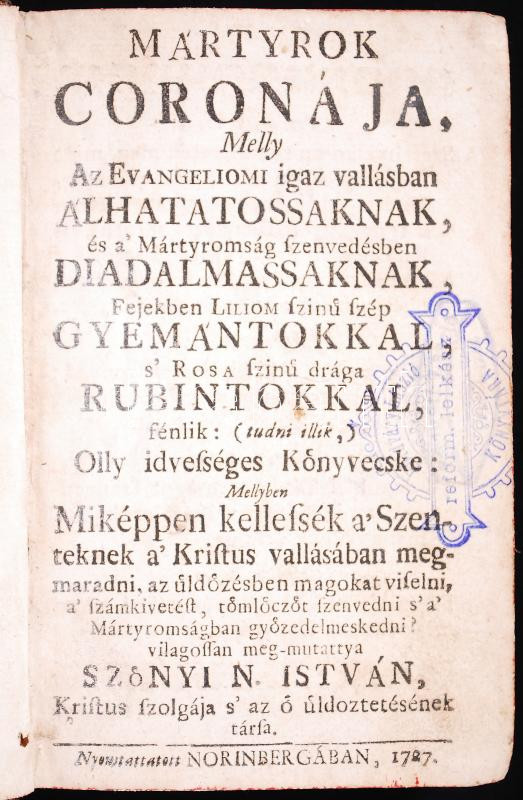 MARTYROK
CORONÁJA,
Melly
Az EVANGELIOMI igaz vallásban
ALHATATOSSAKNAK,
és a' Mártyromság ſzenvedésben
DIADALMASSAKNAK,
Fejekben LILIOM ſzinű ſzép
GYEMANTOKKAL,
s' ROSA ſzinű drága
RUBINTOKKAL,
fénlik: (tudni illik,)
Olly idveſséges Kőnyvecske:
Mellyben
Miképpen kelleſsék a' Szen-
teknek a' Kriſtus vallásában meg-
maradni, az űldőzésben magokat viſelni,
a' ſzámkivetéſt, tőmlőczőt ſzenvedni s' a'
Mártyromságban győzedelmeskedni?
világoſſan meg-mutattya
SZŐNYI N. ISTVÁN,
Kriſtus ſzolgája s' az ő űldoztetésének
tárſa.
Nyomtattatott NORINBERGÁBAN, 1727.
reform. lelkész